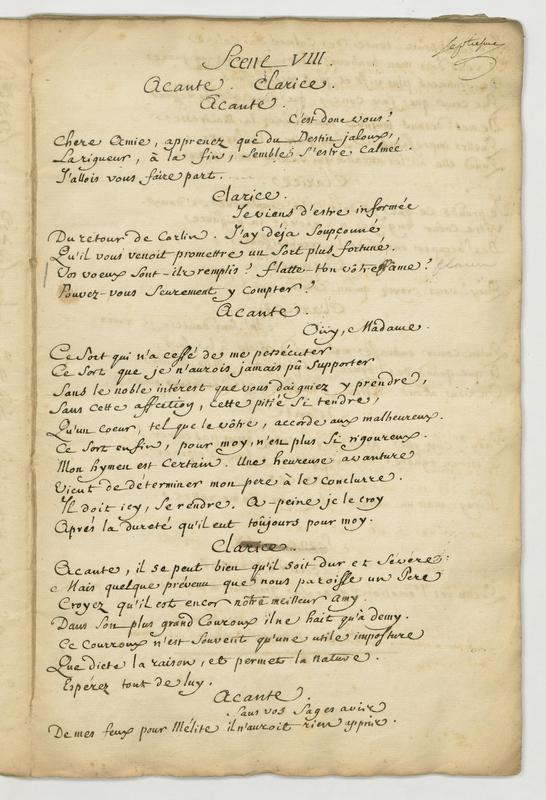 Septieme
Scene VIII.
Acante. Clarice.
Acante.
C'est donc vous!
Chere Amie, apprenez que du Destin jaloux,
La rigueur, à la fin, semble s'estre calmée.
J'allois vous faire part....
Clarice.
Je viens d'estre informée
Du retour de Corlin. J'ay déja soupçonné
Qu'il vous venoit promettre un sort plus fortuné.
Vos voeux sont-ils remplis? flatte-t'on vôtre ame?
Pouvez-vous seurement y compter?
Acante.
Oüy, Madame.
Ce sort qui n'a cessé de me persécuter
Ce sort que je n'aurois jamais pû supporter
Sans le noble intérest que vous daigniez y prendre,
Sans cette affection, cette pitié si tendre,
Qu'un coeur, tel que le vôtre, accorde aux malheureux.
Ce sort enfin, pour moy, n'est plus si rigoureux.
Mon hymen est certain. Une heureuse avanture
Vient de déterminer mon pere à le conclurre.
Il doit icy, se rendre. A-peine je le croy
Aprés la dureté qu'il eut toûjours pour moy.
Clarice.
Acante, il se peut bien qu'il soit dur et sévere:
Mais quelque prévenu que nous paroisse un Pere
Croyez qu'il est encor nôtre meilleur amy.
Dans son plus grand Couroux il ne hait qu'à demy.
Ce Courroux n'est souvent qu'une utile imposture
Que dicte la raison, et permet la nature.
Espérez tout de luy.
Acante.
Sans vos sages avis
De mes feux pour Mélite il n'auroit rien appris.